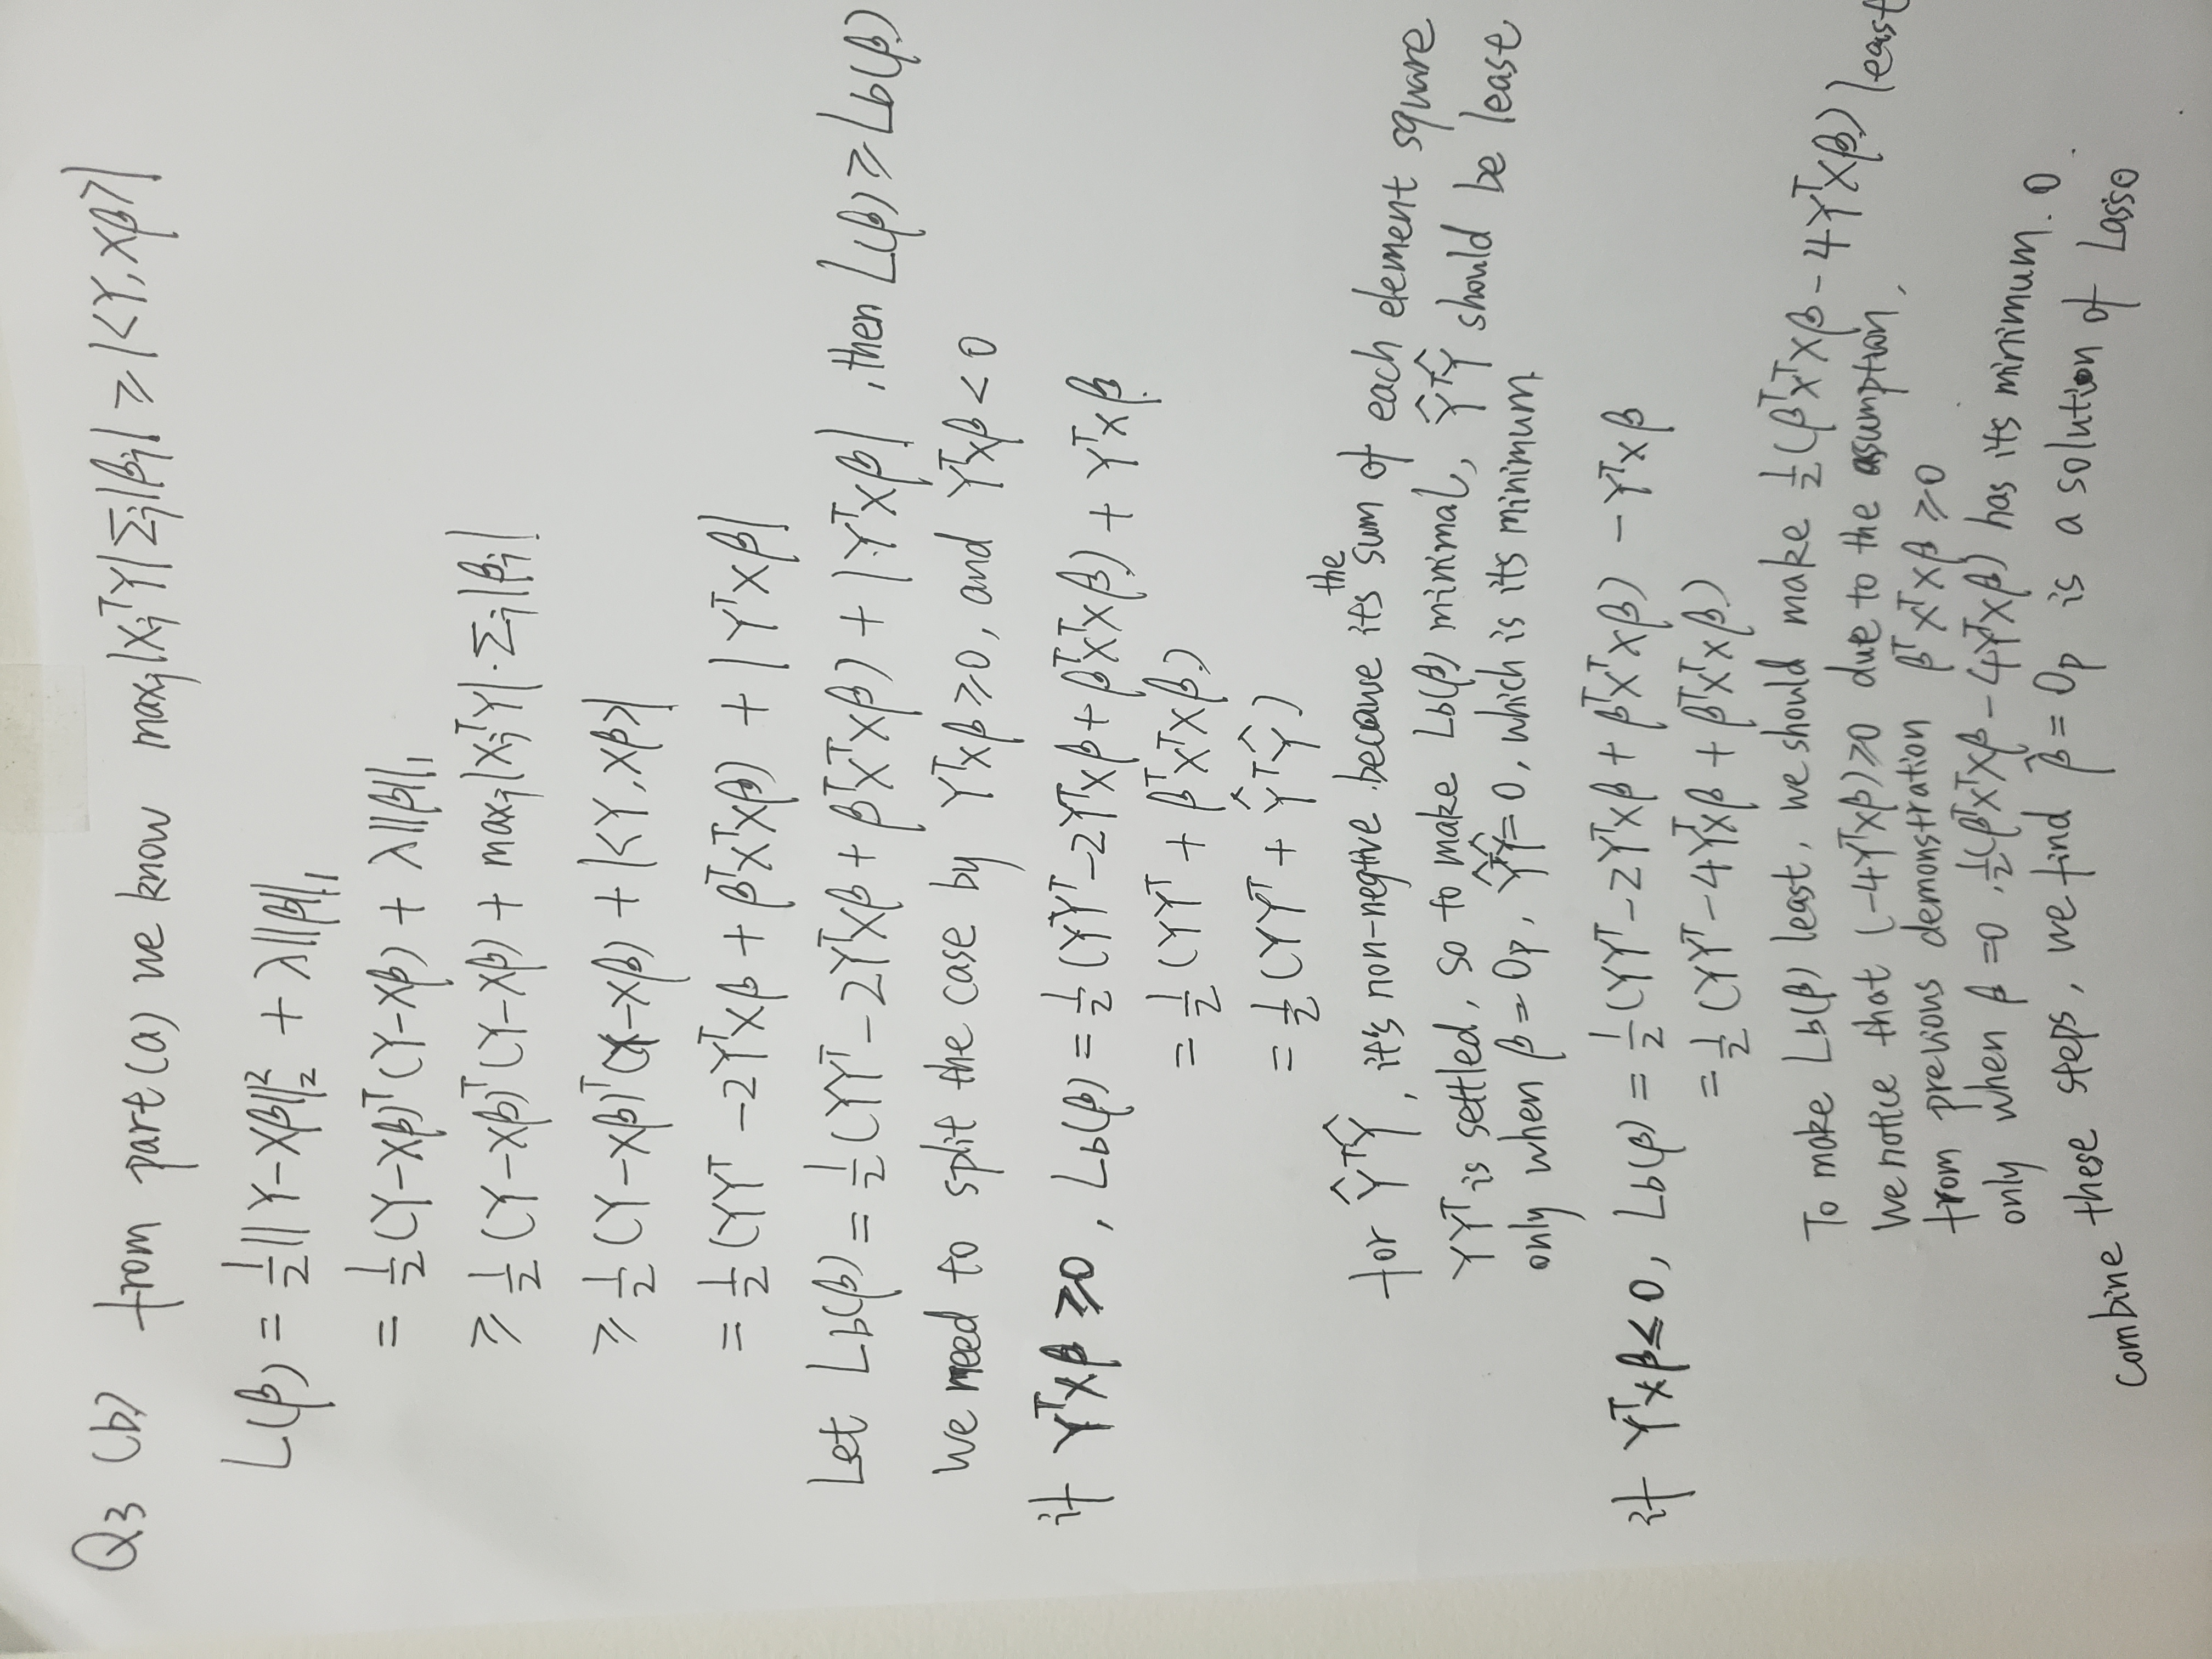 Q3 (b) from part(a) we know max_j|X_j^T Y| Σ_j|β_j| ≥ |<Y, Xβ>|
L(β) = 1/2 ||Y-Xβ||_2^2 + λ||β||_1
= 1/2 (Y-Xβ)^T (Y-Xβ) + λ||β||_1
≥ 1/2 (Y-Xβ)^T (Y-Xβ) + max_j|X_j^T Y| · Σ_j|β_j|
≥ 1/2 (Y-Xβ)^T (Y-Xβ) + |<Y, Xβ>|
= 1/2 (YY^T - 2Y^T Xβ + β^T X^T Xβ) + |Y^T Xβ|
Let Lb(β) = 1/2 (YY^T - 2Y^T Xβ + β^T X^T Xβ) + |Y^T Xβ| , then L(β) ≥ Lb(β)
We need to split the case by Y^T Xβ ≥ 0, and Y^T Xβ < 0
if Y^T Xβ ≥ 0 , Lb(β) = 1/2 (YY^T - 2Y^T Xβ + β^T X^T Xβ) + Y^T Xβ
= 1/2 (YY^T + β^T X^T Xβ)
= 1/2 (YY^T + Ŷ^T Ŷ)
for Ŷ^T Ŷ, it's non-negtive because its the sum of each element square
YY^T is settled, so to make Lb(β) minimal, Ŷ^T Ŷ should be lease
only when β = 0p, Ŷ^T Ŷ = 0, which is its minimum.
if Y^T Xβ ≤ 0, Lb(β) = 1/2 (YY^T - 2Y^T Xβ + β^T X^T Xβ) - Y^T Xβ
= 1/2 (YY^T - 4Y^T Xβ + β^T X^T Xβ)
To make Lb(β) least, we should make 1/2 (β^T X^T Xβ - 4Y^T Xβ) least
We notice that (-4Y^T Xβ) ≥ 0 due to the assumption,
from previous demonstration β^T X^T Xβ ≥ 0
only when β = 0 , 1/2 (β^T X^T Xβ - 4Y^T Xβ) has its minimum. 0
combine these steps, we find β̂ = 0p is a solution of Lasso